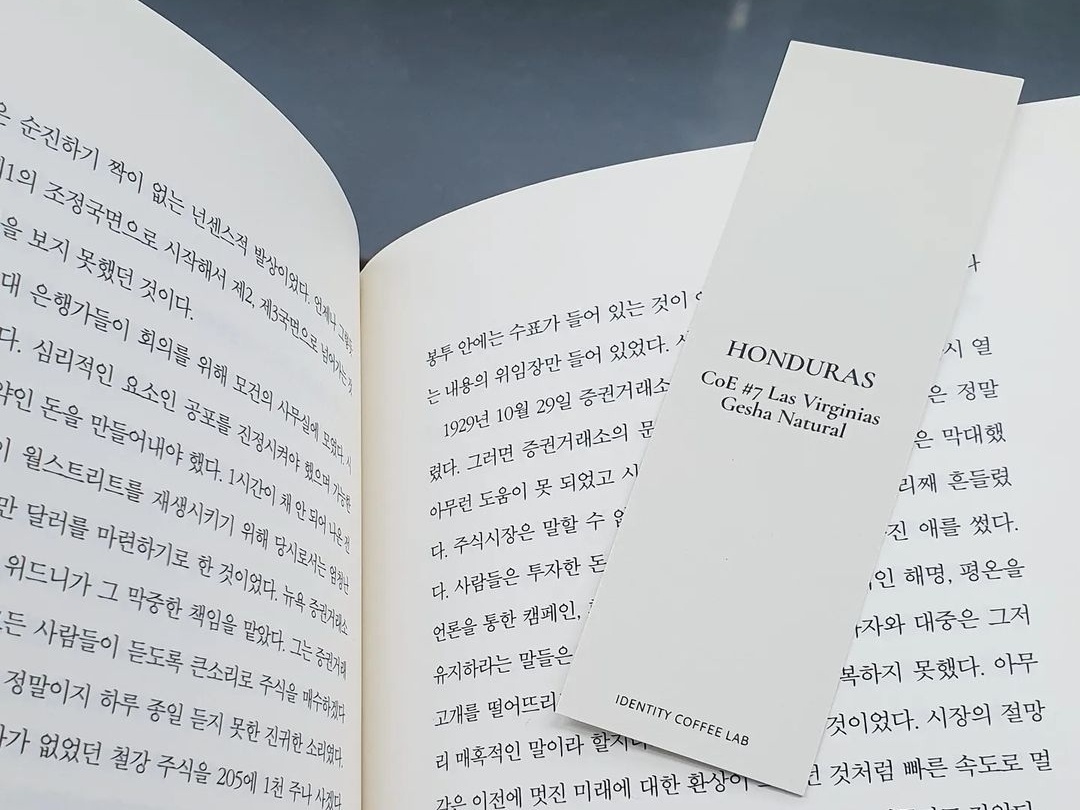 은 순진하기 짝이 없는 넌센스적 발상이었다. 언제나 그렇듯
제1의 조정국면으로 시작해서 제2, 제3국면으로 넘어가는 것
을 보지 못했던 것이다.
대 은행가들이 회의를 위해 모건의 사무실에 모였다. 시
다. 심리적인 요소인 공포를 진정시켜야 했으며 가능한
약인 돈을 만들어내야 했다. 1시간이 채 안 되어 나온 전
이 월스트리트를 재생시키기 위해 당시로서는 엄청난
만 달러를 마련하기로 한 것이었다. 뉴욕 증권거래소
위드니가 그 막중한 책임을 맡았다. 그는 증권거래
모든 사람들이 듣도록 큰소리로 주식을 매수하겠다
정말이지 하루 종일 듣지 못한 진귀한 소리였다.
가 없었던 철강 주식을 205에 1천 주나 사겠다
봉투 안에는 수표가 들어 있는 것이
는 내용의 위임장만 들어 있었다.
시 열
1929년 10월 29일 증권거래소
은 정말
렸다. 그러면 증권거래소의 문
은 막대했
아무런 도움이 못 되었고
리째 흔들렸
다. 주식시장은 말할 수
진 애를 썼다.
다. 사람들은 투자한 돈
인 해명, 평온을
언론을 통한 캠페인,
자와 대중은 그저
유지하라는 말들은
복하지 못했다. 아무
고개를 떨어뜨리
것이었다. 시장의 절망
리 매혹적인 말이라 할지라
던 것처럼 빠른 속도로 멀
같은 이전에 멋진 미래에 대한 환상이
HONDURAS
CoE #7 Las Virginias
Gesha Natural
IDENTITY COFFEE LAB